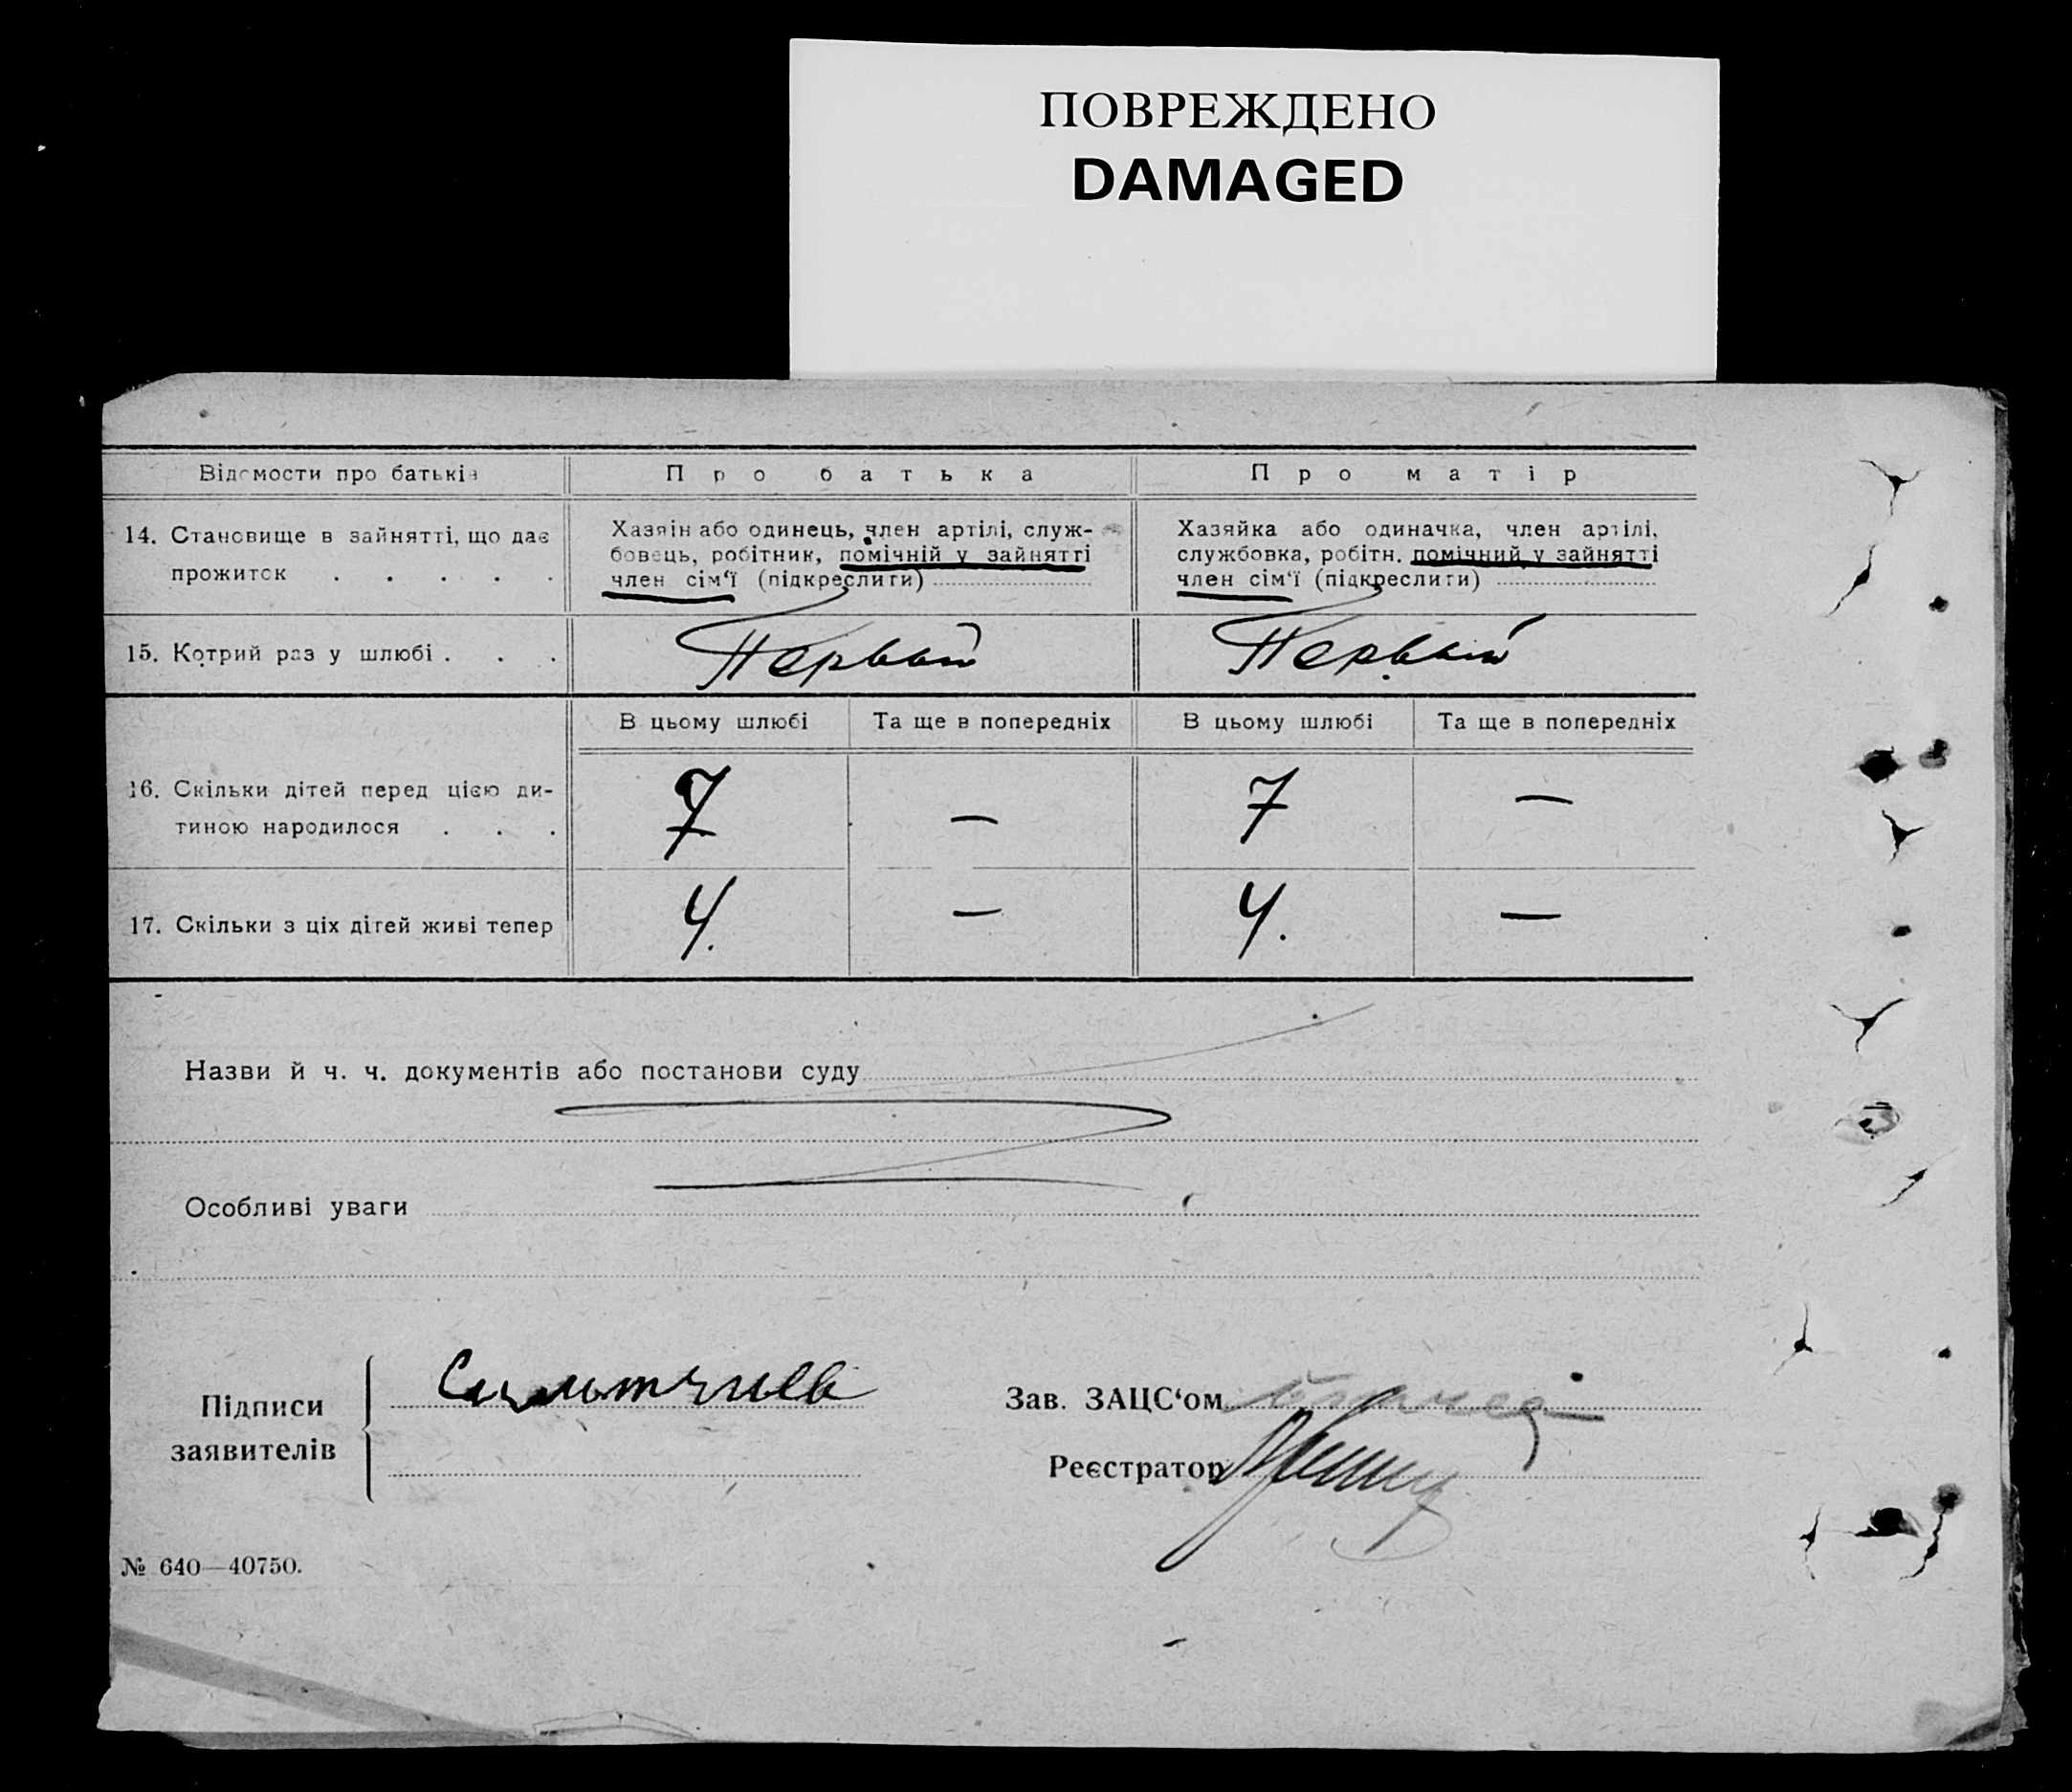 ПОВРЕЖДЕНО
DAMAGED
Відомости про батьків
Про батька
Про матір
14. Становище в зайнятті, що дає
прожиток . . . . .
Хазяін або одинець, член артілі, служ-
бовець, робітник, помічній у зайнятті
член сім‘ї (підкреслити)
Хазяйка або одиначка, член артілі,
службовка, робітн. помічний у зайнятті
член сім‘ї (підкреслити)
15. Котрий раз у шлюбі . . .
Первый
Первый
В цьому шлюбі
Та ще в попередніх
В цьому шлюбі
Та ще в попередніх
16. Скільки дітей перед цією ди-
тиною народилося . . .
7
—
7
—
17. Скільки з ціх дітей живі тепер
4.
—
4.
—
Назви й ч. ч. документів або постанови суду
Особливі уваги
Підписи
заявителів
Зав. ЗАЦС‘ом
Реєстратор
№ 640—40750.